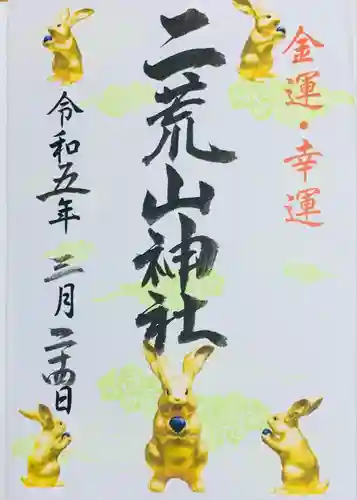 金運・幸運
二荒山神社
令和五年三月二十四日